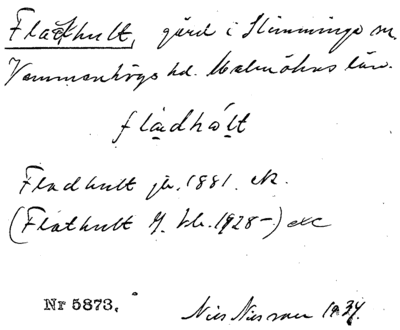 Fladhult, gård i Slimminge sn.
Vemmenhögs hd. Malmöhus län.
fladhólt
Fladhult jb. 1881. ek.
(Flathult g. bl. 1928-) etc
Nr 5873. Nils Nilsson 1934.